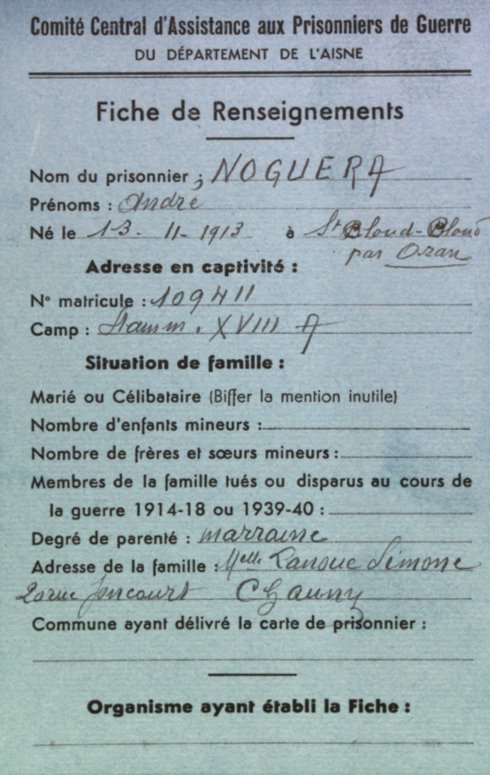 Comité Central d'Assistance aux Prisonniers de Guerre
DU DÉPARTEMENT DE L'AISNE
Fiche de Renseignements
Nom du prisonnier : NOGUERA
Prénoms : André
Né le 13-11-1913 à St Cloud-
par Oran
Adresse en captivité :
N° matricule : 109411
Camp : XVIII A
Situation de famille :
Marié ou Célibataire (Biffer la mention inutile)
Nombre d'enfants mineurs :
Nombre de frères et sœurs mineurs :
Membres de la famille tués ou disparus au cours de
la guerre 1914-18 ou 1939-40 :
Degré de parenté : marraine
Adresse de la famille : Melle Lanoue Simone
20 rue Joncourt Chauny
Commune ayant délivré la carte de prisonnier :
Organisme ayant établi la Fiche :